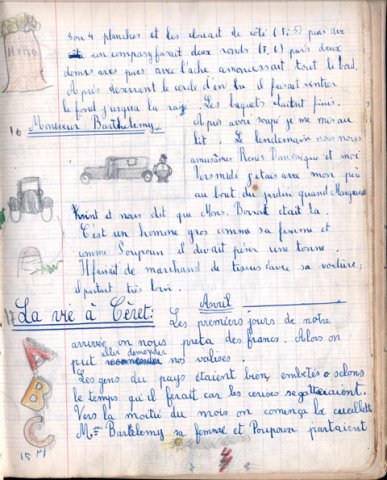 son 4 planches et les clouait de côté (1, 5) puis avec
un compas, fasait deux ronds (7, 6) puis deux
demis arcs puis avec l'ache amincissait tout le bord.
Après déserrant la corde d'en bas il faisait rentrer
le fond jusqua la raye. Les baquets étaitent finis.
16 Monsieur Barthélemy. Après avoir soupé je me mis au
lit. Le lendemain nous nous
amusâmes René Dominique et moi
Vers midi j'étais avec mon père
au bout du jardin quand
vint et nous dit que Mons. Borrat était la.
C'est un homme gros comme sa femme et
comme Poupoun il devait peser une tonne.
Il faisait de marchand de tissus avec sa voiture;
il partait très loin.
17 La vie à Céret: Avril
Les premiers jours de notre
arrivée on nous preta des francs. Alors on
put aller demander nos valises.
Les gens du pays étaient bien embêtés
le temps qu'il ferait car les cerises se gatteraient.
Vers la moitié du mois on comença la cueillette
Mr Barthelemy sa femme et Poupoune partaient
A
B
C
15